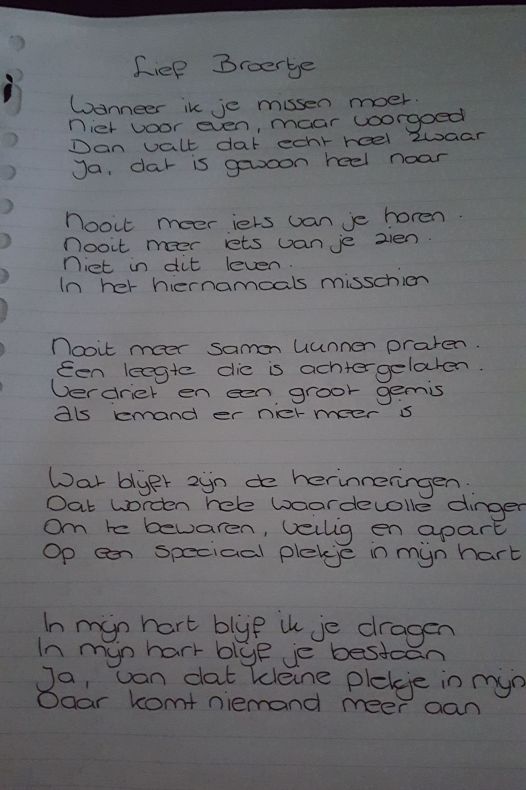 Lief Broertje
Wanneer ik je missen moet.
Niet voor even, maar voorgoed
Dan valt dat echt heel zwaar
Ja, dat is gewoon heel naar
Nooit meer iets van je horen.
Nooit meer iets van je zien.
Niet in dit leven.
In het hiernamaals misschien
Nooit meer samen kunnen praten.
Een leegte die is achtergelaten.
Verdriet en een groot gemis
als iemand er niet meer is
Wat blijft zijn de herinneringen.
Dat worden hele waardevolle dingen
Om te bewaren, veilig en apart
Op een speciaal plekje in mijn hart
In mijn hart blijf ik je dragen
In mijn hart blijf je bestaan
Ja, van dat kleine plekje in mijn
Daar komt niemand meer aan